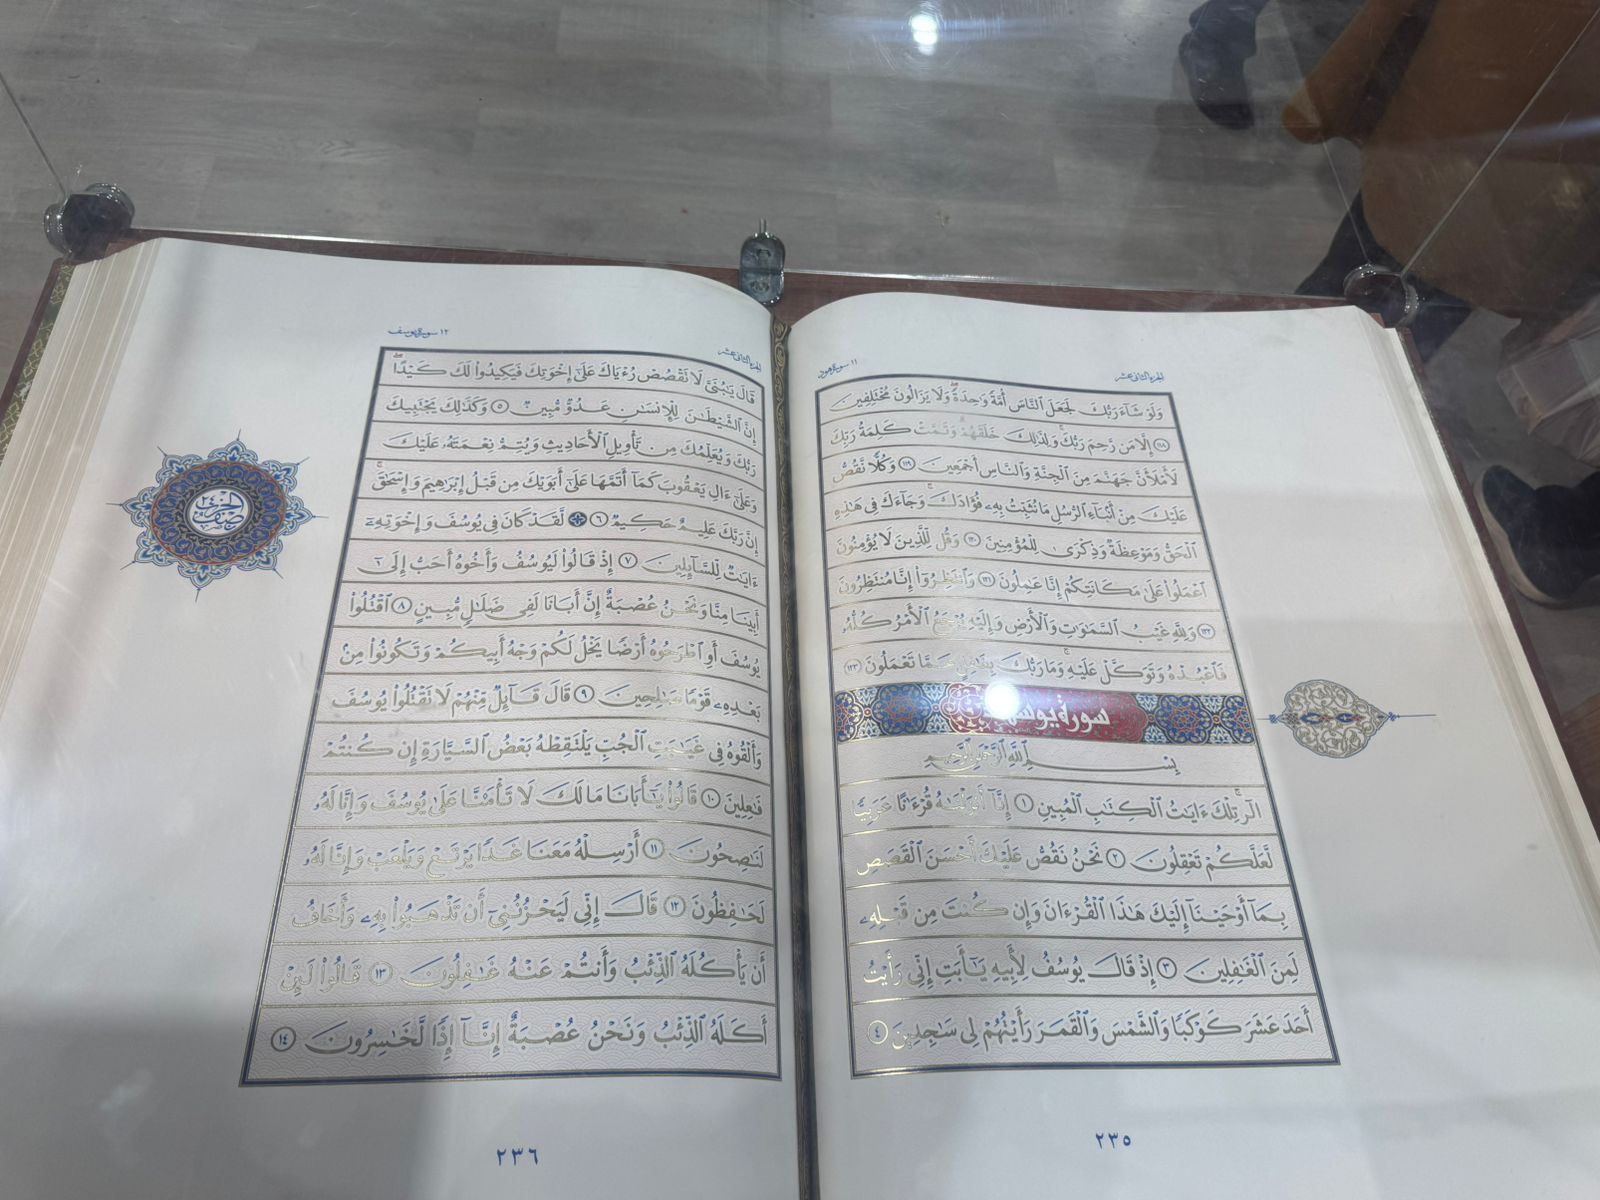 الجزء الثانى عشر
١١ سورة هود
وَلَوْ شَآءَ رَبُّكَ لَجَعَلَ ٱلنَّاسَ أُمَّةً وَٰحِدَةً ۖ وَلَا يَزَالُونَ مُخْتَلِفِينَ
١١٨ إِلَّا مَن رَّحِمَ رَبُّكَ ۚ وَلِذَٰلِكَ خَلَقَهُمْ ۗ وَتَمَّتْ كَلِمَةُ رَبِّكَ
لَأَمْلَأَنَّ جَهَنَّمَ مِنَ ٱلْجِنَّةِ وَٱلنَّاسِ أَجْمَعِينَ ١١٩ وَكُلًّا نَّقُصُّ
عَلَيْكَ مِنْ أَنۢبَآءِ ٱلرُّسُلِ مَا نُثَبِّتُ بِهِۦ فُؤَادَكَ ۚ وَجَآءَكَ فِى هَٰذِهِ
ٱلْحَقُّ وَمَوْعِظَةٌ وَذِكْرَىٰ لِلْمُؤْمِنِينَ ١٢٠ وَقُل لِّلَّذِينَ لَا يُؤْمِنُونَ
ٱعْمَلُوا۟ عَلَىٰ مَكَانَتِكُمْ إِنَّا عَٰمِلُونَ ١٢١ وَٱنتَظِرُوٓا۟ إِنَّا مُنتَظِرُونَ
١٢٢ وَلِلَّهِ غَيْبُ ٱلسَّمَٰوَٰتِ وَٱلْأَرْضِ وَإِلَيْهِ يُرْجَعُ ٱلْأَمْرُ كُلُّهُۥ
فَٱعْبُدْهُ وَتَوَكَّلْ عَلَيْهِ ۚ وَمَا رَبُّكَ بِغَٰفِلٍ عَمَّا تَعْمَلُونَ ١٢٣
سورة يوسف
بِسْمِ ٱللَّهِ ٱلرَّحْمَٰنِ ٱلرَّحِيمِ
الٓر ۚ تِلْكَ ءَايَٰتُ ٱلْكِتَٰبِ ٱلْمُبِينِ ١ إِنَّآ أَنزَلْنَٰهُ قُرْءَٰنًا عَرَبِيًّا
لَّعَلَّكُمْ تَعْقِلُونَ ٢ نَحْنُ نَقُصُّ عَلَيْكَ أَحْسَنَ ٱلْقَصَصِ
بِمَآ أَوْحَيْنَآ إِلَيْكَ هَٰذَا ٱلْقُرْءَانَ وَإِن كُنتَ مِن قَبْلِهِۦ
لَمِنَ ٱلْغَٰفِلِينَ ٣ إِذْ قَالَ يُوسُفُ لِأَبِيهِ يَٰٓأَبَتِ إِنِّى رَأَيْتُ
أَحَدَ عَشَرَ كَوْكَبًا وَٱلشَّمْسَ وَٱلْقَمَرَ رَأَيْتُهُمْ لِى سَٰجِدِينَ ٤
٢٣٥
الجزء الثانى عشر
١٢ سورة يوسف
قَالَ يَٰبُنَىَّ لَا تَقْصُصْ رُءْيَاكَ عَلَىٰٓ إِخْوَتِكَ فَيَكِيدُوا۟ لَكَ كَيْدًا ۖ
إِنَّ ٱلشَّيْطَٰنَ لِلْإِنسَٰنِ عَدُوٌّ مُّبِينٌ ٥ وَكَذَٰلِكَ يَجْتَبِيكَ
رَبُّكَ وَيُعَلِّمُكَ مِن تَأْوِيلِ ٱلْأَحَادِيثِ وَيُتِمُّ نِعْمَتَهُۥ عَلَيْكَ
وَعَلَىٰٓ ءَالِ يَعْقُوبَ كَمَآ أَتَمَّهَا عَلَىٰٓ أَبَوَيْكَ مِن قَبْلُ إِبْرَٰهِيمَ وَإِسْحَٰقَ ۚ
إِنَّ رَبَّكَ عَلِيمٌ حَكِيمٌ ٦ لَّقَدْ كَانَ فِى يُوسُفَ وَإِخْوَتِهِۦٓ
ءَايَٰتٌ لِّلسَّآئِلِينَ ٧ إِذْ قَالُوا۟ لَيُوسُفُ وَأَخُوهُ أَحَبُّ إِلَىٰٓ
أَبِينَا مِنَّا وَنَحْنُ عُصْبَةٌ إِنَّ أَبَانَا لَفِى ضَلَٰلٍ مُّبِينٍ ٨ ٱقْتُلُوا۟
يُوسُفَ أَوِ ٱطْرَحُوهُ أَرْضًا يَخْلُ لَكُمْ وَجْهُ أَبِيكُمْ وَتَكُونُوا۟ مِنۢ
بَعْدِهِۦ قَوْمًا صَٰلِحِينَ ٩ قَالَ قَآئِلٌ مِّنْهُمْ لَا تَقْتُلُوا۟ يُوسُفَ
وَأَلْقُوهُ فِى غَيَٰبَتِ ٱلْجُبِّ يَلْتَقِطْهُ بَعْضُ ٱلسَّيَّارَةِ إِن كُنتُمْ
فَٰعِلِينَ ١٠ قَالُوا۟ يَٰٓأَبَانَا مَا لَكَ لَا تَأْمَ۫نَّا عَلَىٰ يُوسُفَ وَإِنَّا لَهُۥ
لَنَٰصِحُونَ ١١ أَرْسِلْهُ مَعَنَا غَدًا يَرْتَعْ وَيَلْعَبْ وَإِنَّا لَهُۥ
لَحَٰفِظُونَ ١٢ قَالَ إِنِّى لَيَحْزُنُنِىٓ أَن تَذْهَبُوا۟ بِهِۦ وَأَخَافُ
أَن يَأْكُلَهُ ٱلذِّئْبُ وَأَنتُمْ عَنْهُ غَٰفِلُونَ ١٣ قَالُوا۟ لَئِنْ
أَكَلَهُ ٱلذِّئْبُ وَنَحْنُ عُصْبَةٌ إِنَّآ إِذًا لَّخَٰسِرُونَ ١٤
نصف
الحزب
٢٤
٢٣٦